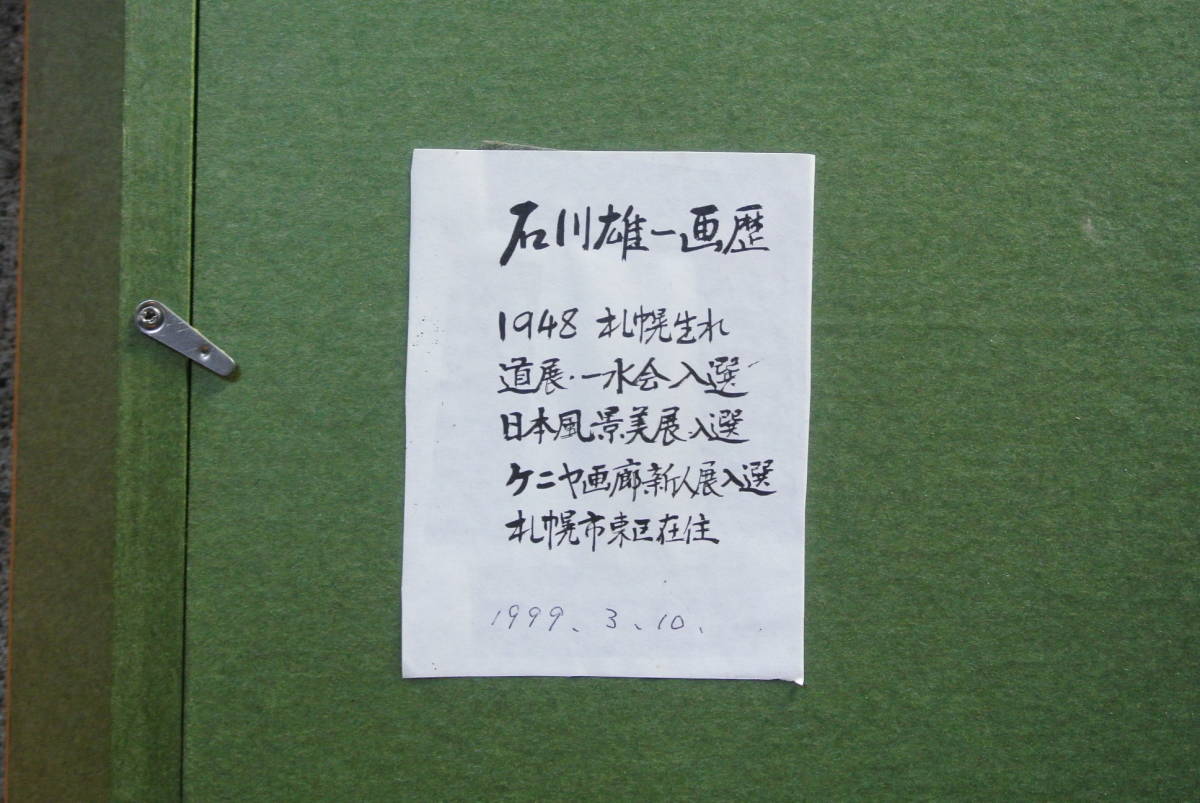 石川雄一画歴
1948 札幌生れ
道展・一水会入選
日本風景美展入選
ケニヤ画廊新人展入選
札幌市東区在住
1999、3、10、